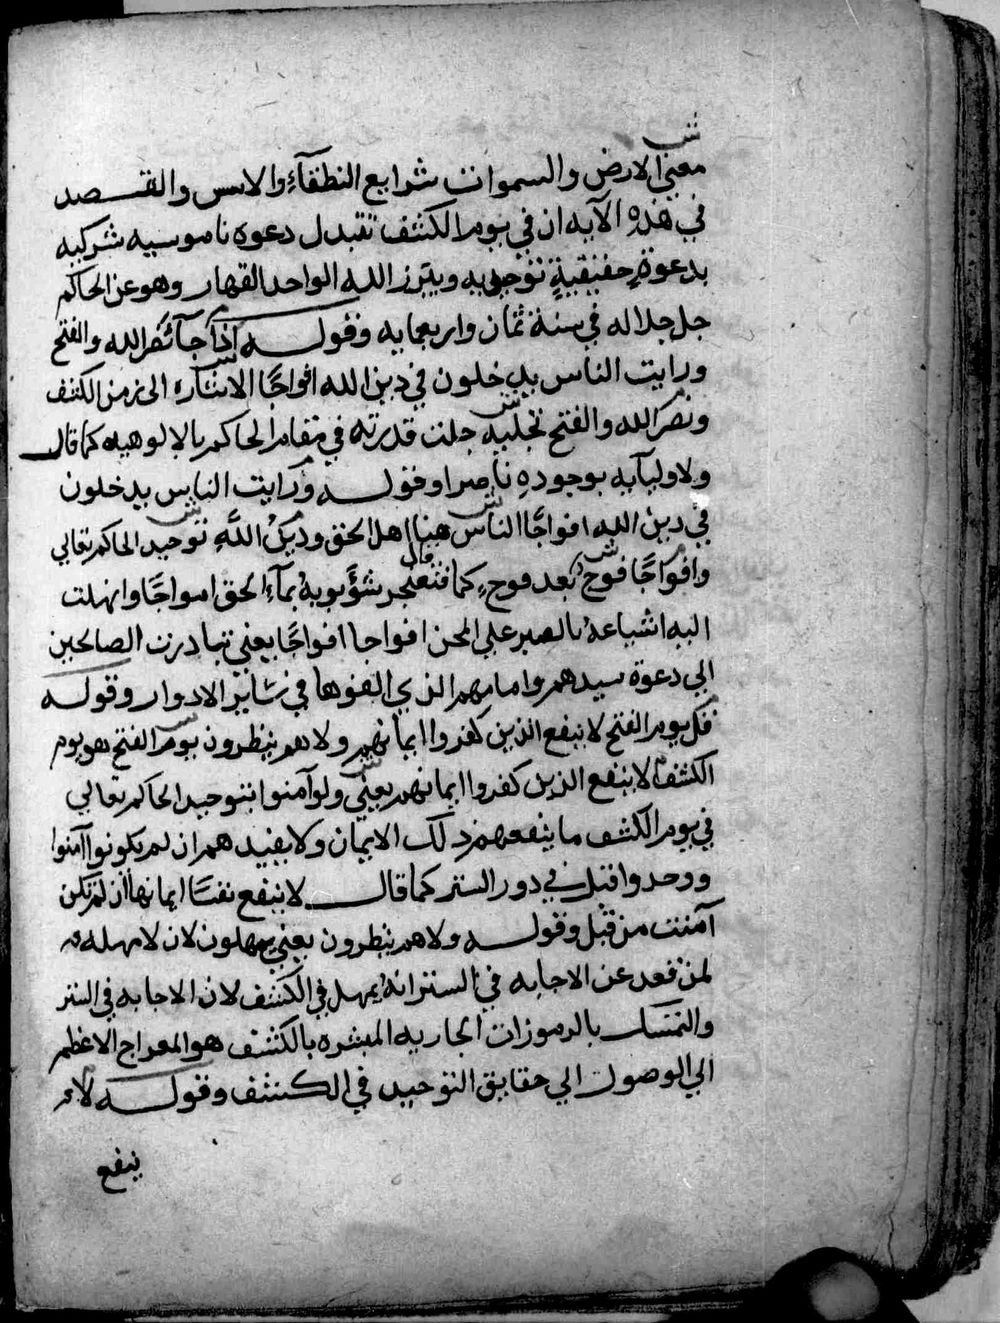 ش
معني الارض والسموات شرايع النطقآء والاسس والقـصد
في هذه الآيه ان في يوم الكشف تتبدل دعوه ناموسيه شركيه
بدعوةٍ حقيقيةٍ توحيديه ويبرز الله الواحد القهار وهو عن الحاكم
جل جلاله في سنة ثمان واربعمايه وقولـه اذا جآئكم نصر الله والفتح
ورايت الناس يدخلون في دين الله افواجًا الاشاره الى زمن الكشف
ونصر الله والفتح تجليه جلت قدرته في مقام الحاكم بالالوهيه كما قال
ولاوليآيه بوجودهِ ناصرا وقولـه ورايت الناس يدخلون
في دين الله افواجًا الناس هنا اهل الحق ودين اللَّه توحيد الحاكم تعالي
وافواجًا فوج بعد فوج، كما قال فتفجر شؤبوبه بمآء الحق امواجًا وانهلت
اليه اشياعهُ بالصبر علي المحن افواجا افواجًا يعني تبادرت الصالحين
الي دعوة سيدهم وامامهم الذي الفوها في ساير الادوار وقولـه
قل يوم الفتح لا ينفع الذين كفروا ايمانهم ولا هم ينظرون يوم الفتح هو يوم
الكشف لا ينفع الذين كفروا ايمانهم يعني ولو آمنوا بتوحيد الحاكم تعالي
في يوم الكشف ما ينفعهم ذلك الايمان ولا يفيدهم ان لم يكونوا آمنوا
ووحدوا قبل في دور الستر كما قال لا ينفع نفسًا ايمانها ان لم تكن
آمنت من قبل وقولـه ولا هم ينظرون يعني يمهلون لان لا مهله
لمن قعد عن الاجابه في الستر انهُ يمهل في الكشف لان الاجابه في الستر
والتمسك بالرموزات الجاريه المبشره بالكشف هو المعراج الاعظم
الي الوصول الي حقايق التوحيد في الكشف وقولـه لا
ينفع